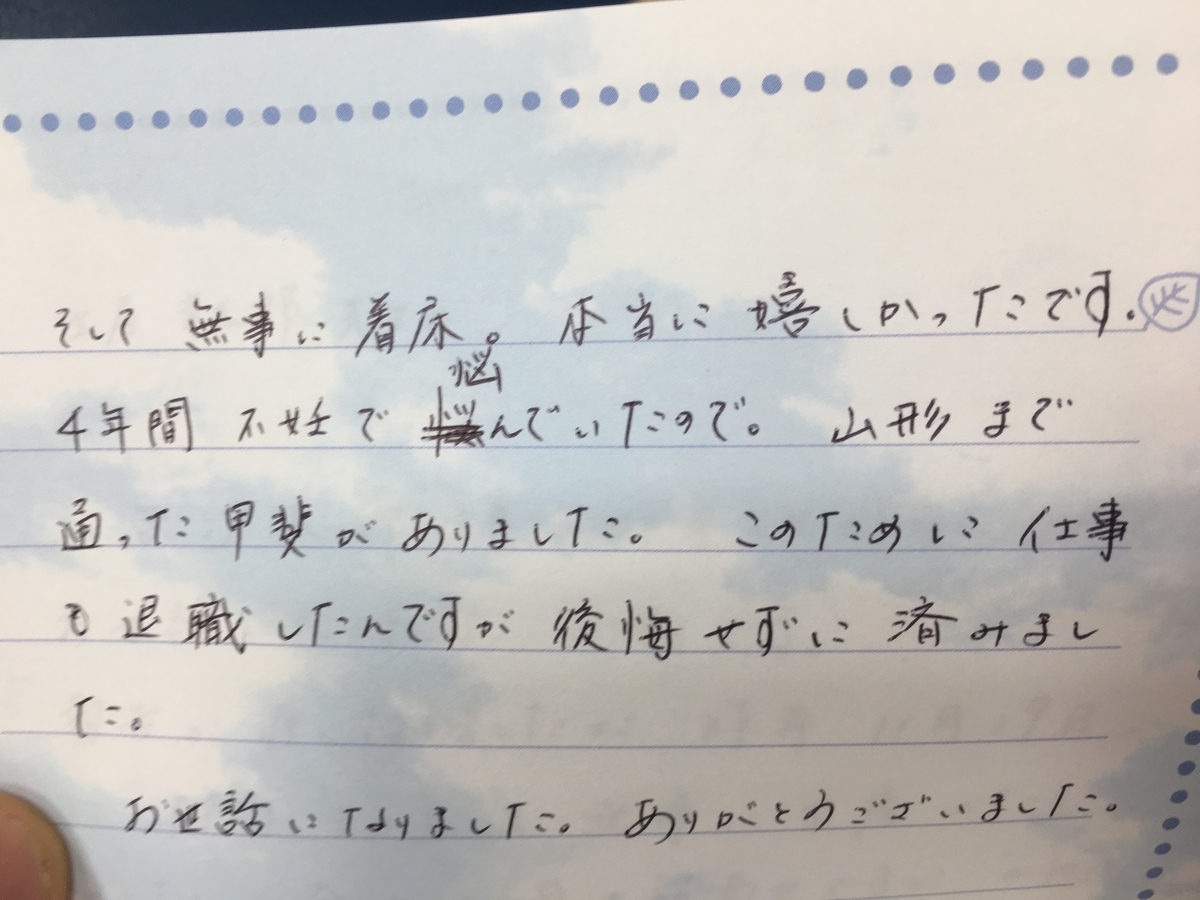 そして 無事に 着床。 本当に 嬉しかったです。
4年間 不妊で 悩んでいたので。 山形まで
通った甲斐がありました。 このために 仕事
も退職したんですが 後悔せずに 済みまし
た。
お世話になりました。ありがとうございました。